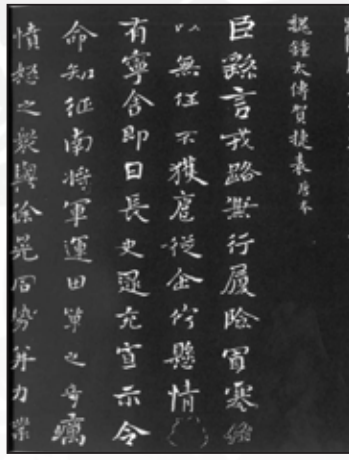 魏鍾太傅賀捷表唐本
臣繇言戎路兼行履險冒寒
以無任不獲扈從企佇懸情
有寧舍即日長史逯充宣示令
命知征南將軍運田單之奇厲
憤怒之衆與徐晃同勢并力